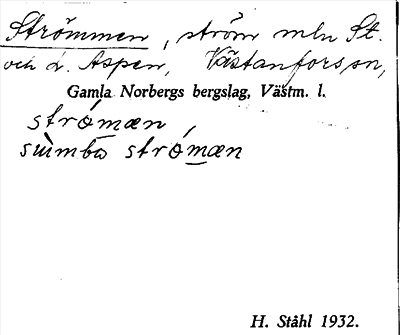 Strömmen, ström mln St.
och L. Aspen, Västanfors sn,
Gamla Norbergs bergslag, Västm. l.
strómæn
sùmba strómæn
H. Ståhl 1932.